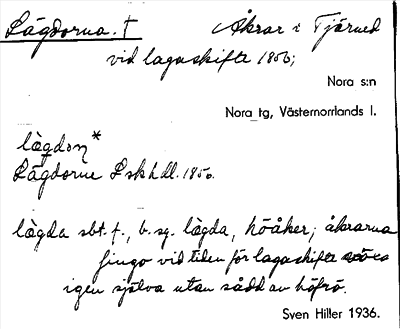 Lägdorna. † Åkrar i Tjärned
vid lagaskifte 1850;
Nora s:n
Nora tg, Västernorrlands l.
lægdoṇ*
Lägdorne Lskhdl. 1850.
lægda sbt. f., b. sg. lægda, höåker; åkrarna
fingo vid tiden för lagaskifte växa
igen själva utan sådd av höfrö.
Sven Hiller 1936.